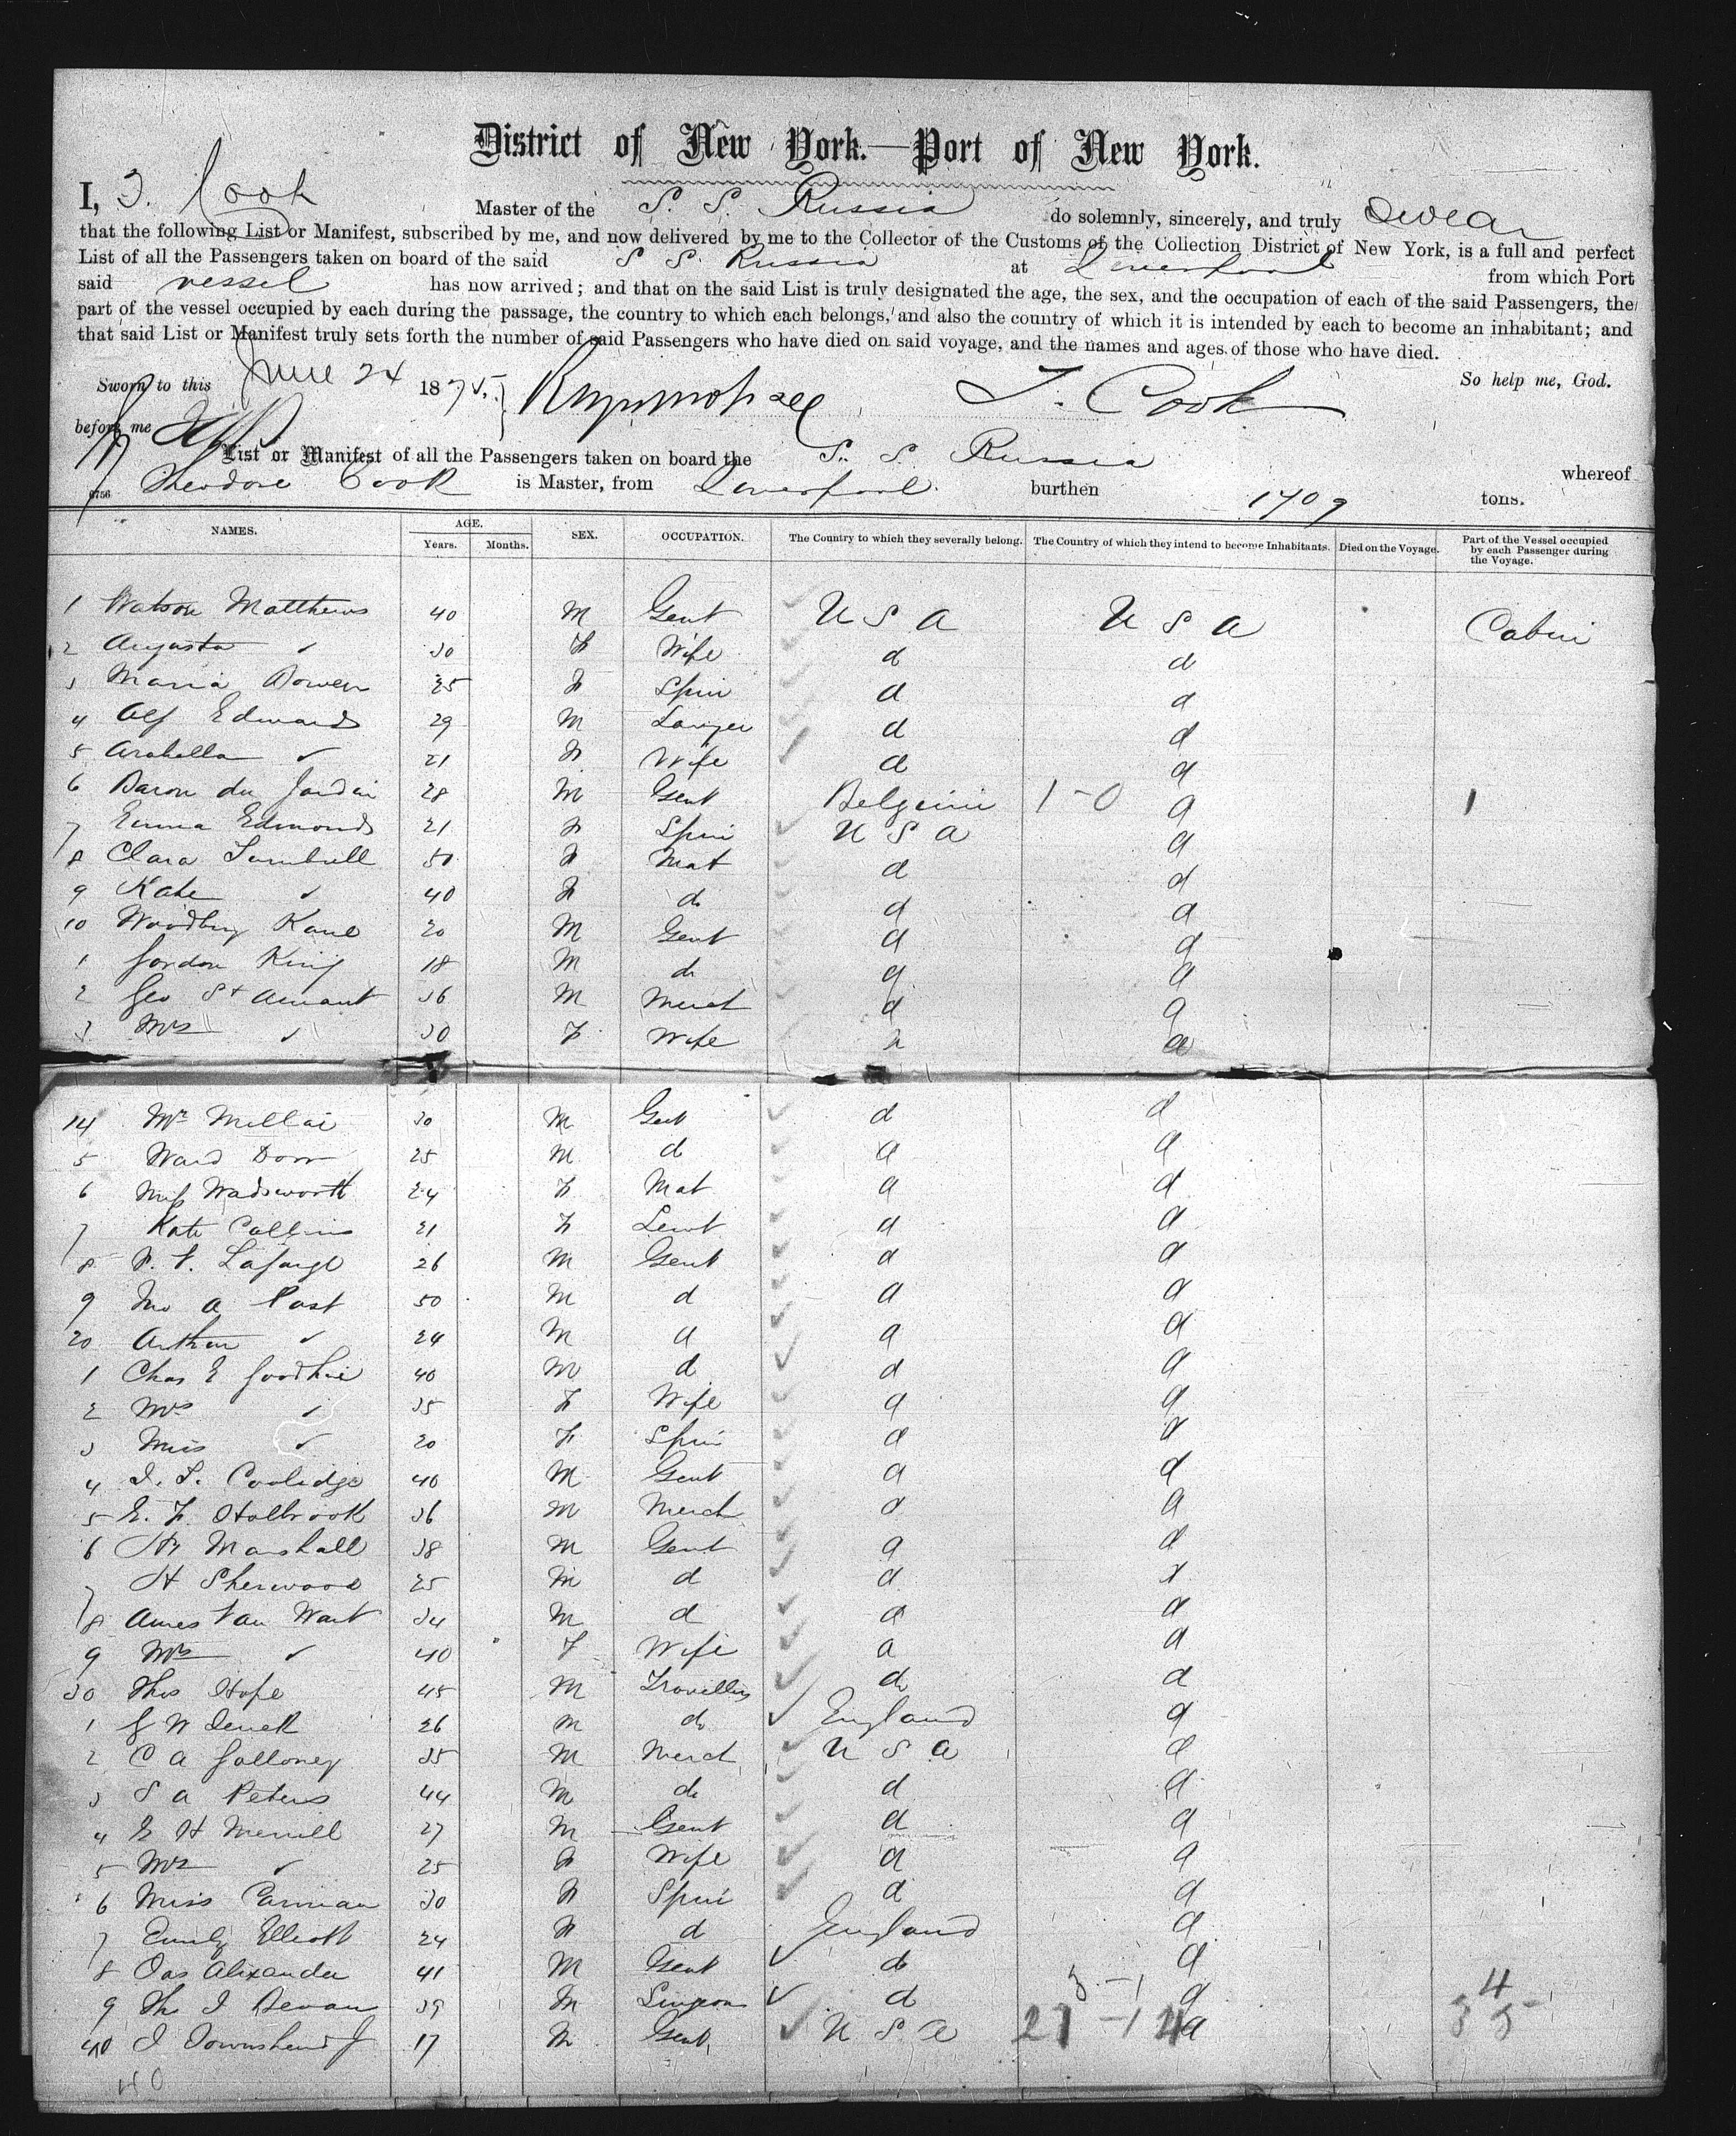 District of New York.—Port of New York.
I, T. Cook Master of the S. S. Russia do solemnly, sincerely, and truly swear
that the following List or Manifest, subscribed by me, and now delivered by me to the Collector of the Customs of the Collection District of New York, is a full and perfect
List of all the Passengers taken on board of the said S. S. Russia at Liverpool from which Port
said vessel has now arrived; and that on the said List is truly designated the age, the sex, and the occupation of each of the said Passengers, the
part of the vessel occupied by each during the passage, the country to which each belongs, and also the country of which it is intended by each to become an inhabitant; and
that said List or Manifest truly sets forth the number of said Passengers who have died on said voyage, and the names and ages of those who have died.
Sworn to this June 24 1875. T. Cook So help me, God.
before me
List or Manifest of all the Passengers taken on board the S. S. Russia whereof
6756 Theodore Cook is Master, from Liverpool burthen 1709 tons.
NAMES. AGE. Years. Months. SEX. OCCUPATION. The Country to which they severally belong. The Country of which they intend to become Inhabitants. Died on the Voyage. Part of the Vessel occupied by each Passenger during the Voyage.
1 Watson Matthews 40 M Gent U S A U S A Cabin
2 Augusta " 30 F Wife d d
3 Maria Bowen 25 F Spin d d
4 Alf Edwards 29 M Lawyer d d
5 Arabella " 21 F Wife d d
6 Baron du Jardin 28 M Gent Belgium 1-0 d 1
7 Emma Edmonds 21 F Spin U S A d
8 Clara Turnbull 50 F Mat d d
9 Kate " 40 F do d d
10 Woodbury Kane 20 M Gent d d
1 Gordon King 18 M do d d
2 Geo St Amant 36 M Merch d d
3 Mrs " 30 F Wife d
14 Mr 30 M Gent d d
5 Ward Dorr 25 M d d d
6 Miss Wadsworth 24 F Mat d d
7 Kate Collins 21 F Servt d d
8 Lafarge 26 M Gent d d
9 Jno A Post 50 M d d d
20 Arthur " 24 M d d d
1 Chas E Goodhue 40 M d d d
2 Mrs " 35 F Wife d d
3 Miss " 20 F Spin d d
4 Coolidge 40 M Gent d d
5 E. F. Holbrook 36 M Merch d d
6 Marshall 38 M Gent d d
7 H Sherwood 25 M d d d
8 Ames Van Wart 34 M d d d
9 Mrs " 40 F Wife d d
30 Thos Hope 45 M Travelling do d
1 26 M do England d
2 C A 35 M Merch U S A d
3 S A Peters 44 M do d d
4 E H Merrill 27 M Gent d d
5 Mrs " 25 F Wife d d
6 Miss 30 F Spin d d
7 Emily Elliott 24 F d England d
8 Alexander 41 M Gent do d
9 Bevan 39 M Surgeon d 3-1 d 4
40 Townshend Jr 17 M Gent U S A 27-14 d 35
40